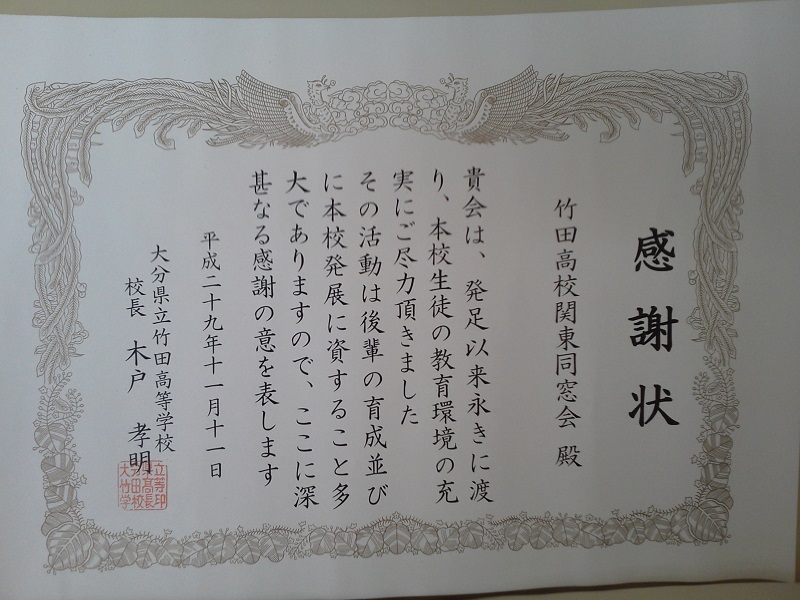 感謝状
竹田高校関東同窓会 殿
貴会は、発足以来永きに渡
り、本校生徒の教育環境の充
実にご尽力頂きました
その活動は後輩の育成並び
に本校発展に資すること多
大でありますので、ここに深
甚なる感謝の意を表します
平成二十九年十一月十一日
大分県立竹田高等学校
校長 木戸 孝明
立等印
県高長
大分竹田学校